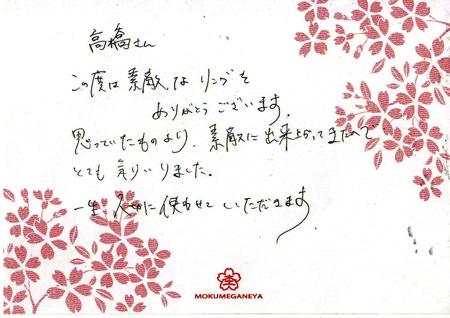 高橋さん
この度は素敵なリングを
ありがとうございます。
思っていたものより、素敵に出来上がってきたので
とても いりました。
一生 大切に使わせていただきます
MOKUMEGANEYA